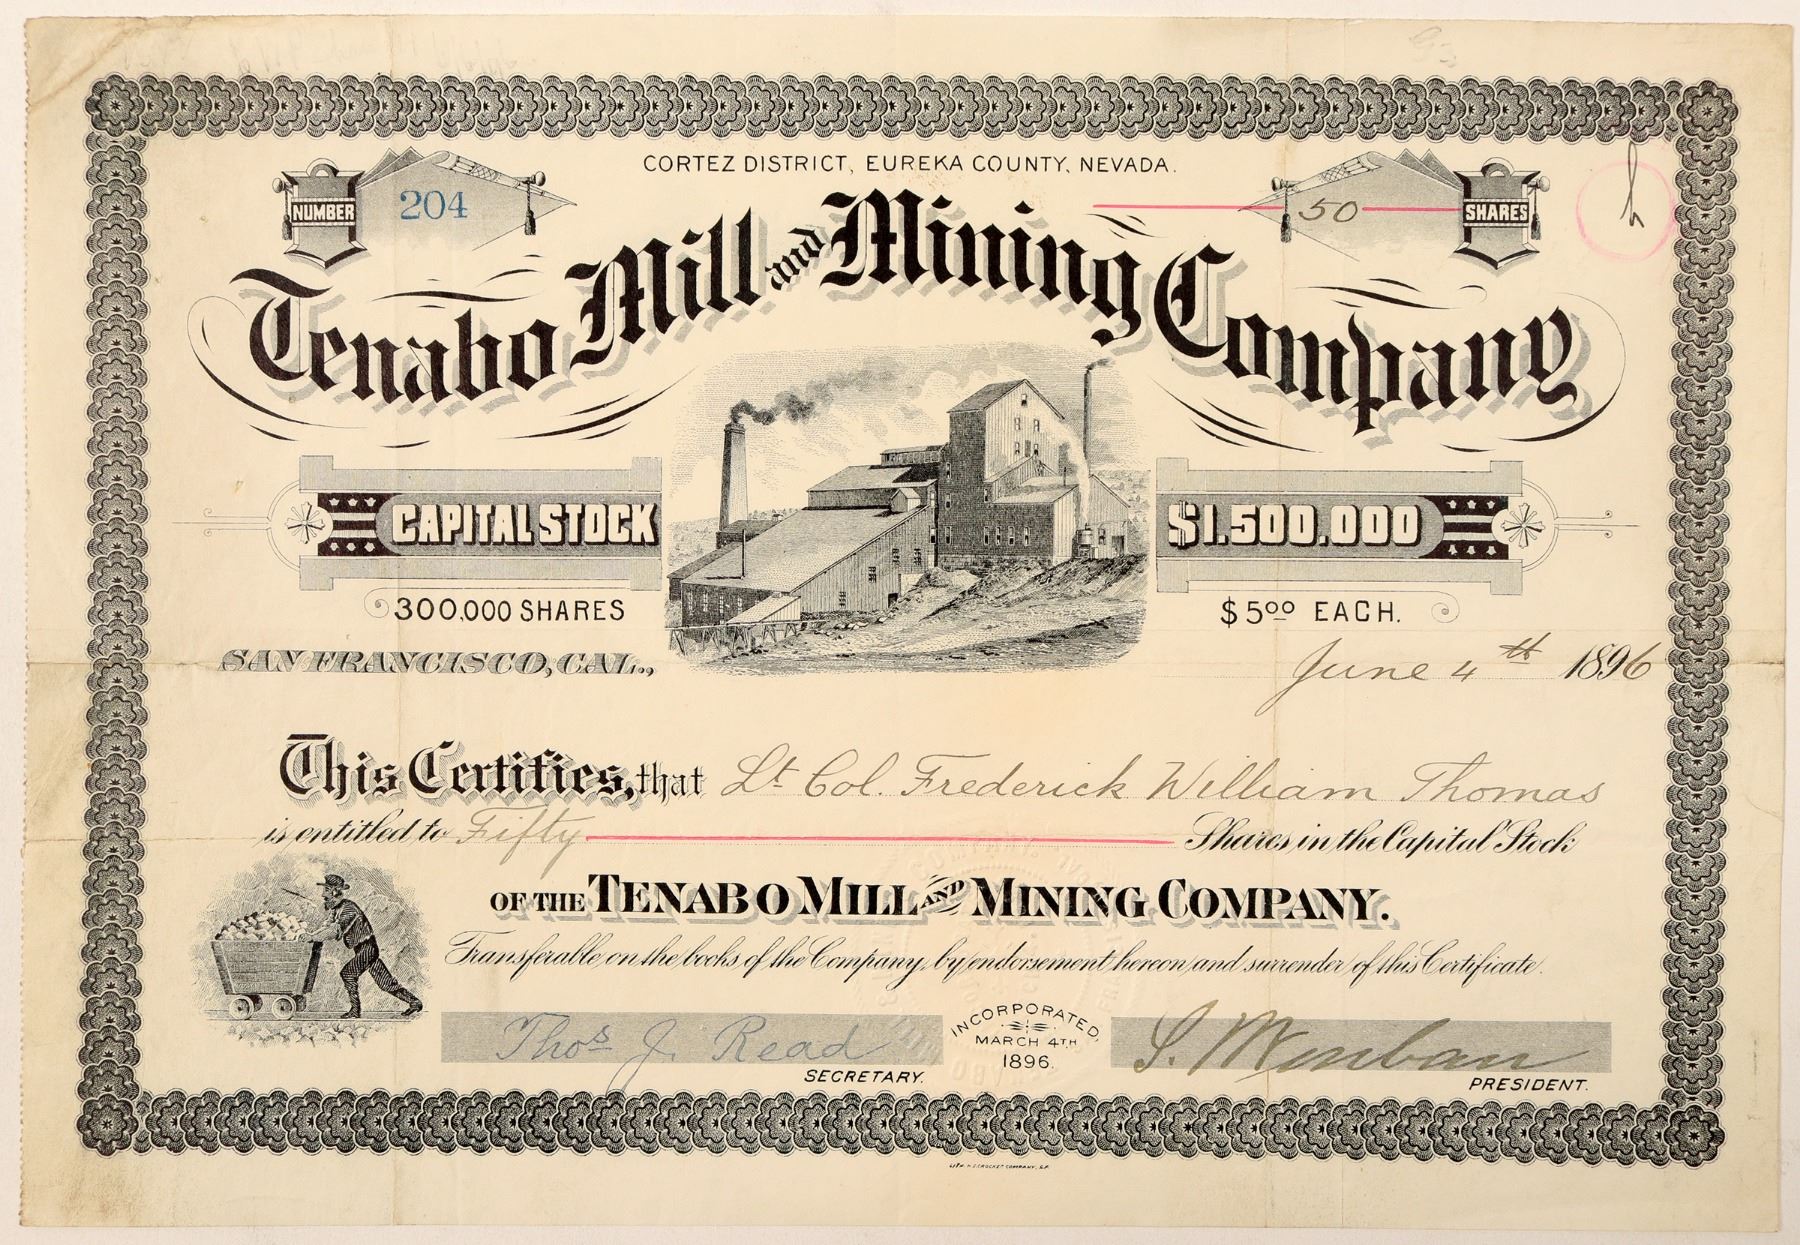 CORTEZ DISTRICT, EUREKA COUNTY, NEVADA.
NUMBER 204
50 SHARES
Tenabo Mill and Mining Company
CAPITAL STOCK $1,500,000
300,000 SHARES $5.00 EACH.
SAN FRANCISCO, CAL., June 4th 1896
This Certifies, that Lt Col. Frederick William Thomas
is entitled to Fifty Shares in the Capital Stock
OF THE TENABO MILL AND MINING COMPANY.
Transferable on the books of the Company, by endorsement hereon and surrender of this Certificate.
Thos J. Read
SECRETARY.
INCORPORATED
MARCH 4TH
1896.
S. Wenban
PRESIDENT.